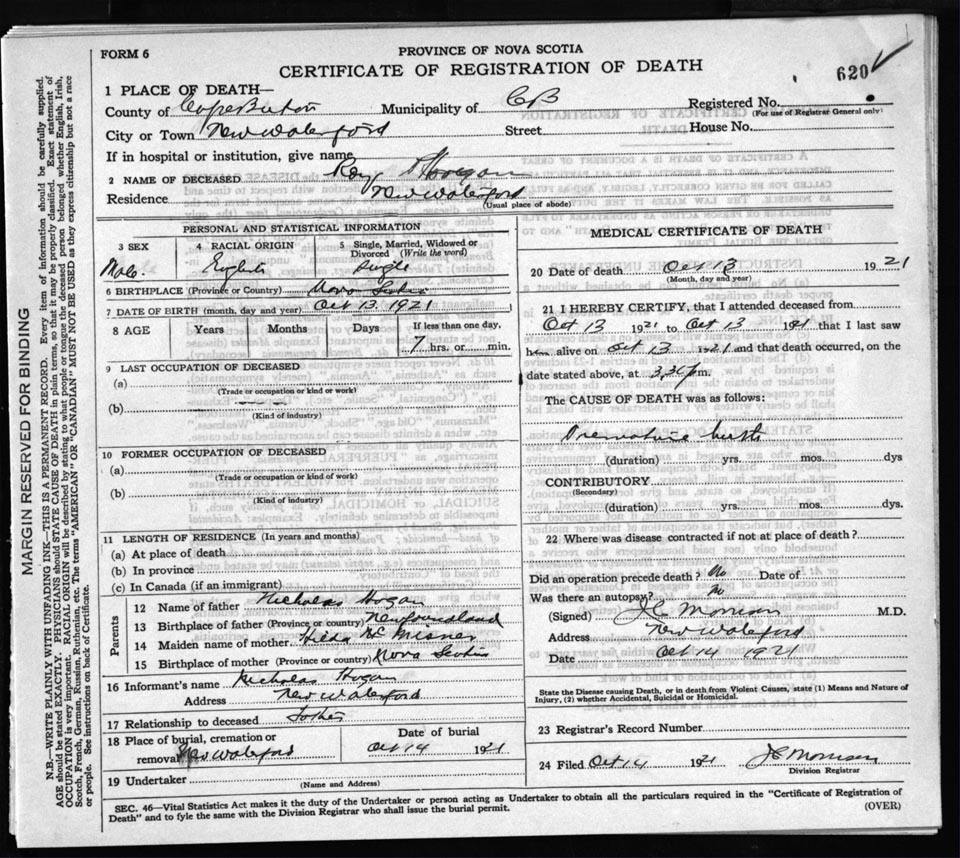 FORM 6
PROVINCE OF NOVA SCOTIA
CERTIFICATE OF REGISTRATION OF DEATH
620
1 PLACE OF DEATH—
County of Cape Breton Municipality of CB Registered No.
(For use of Registrar General only)
City or Town New Waterford Street House No.
If in hospital or institution, give name
2 NAME OF DECEASED Roy Hogan
Residence New Waterford
(Usual place of abode)
PERSONAL AND STATISTICAL INFORMATION
3 SEX 4 RACIAL ORIGIN 5 Single, Married, Widowed or Divorced (Write the word)
Male English Single
6 BIRTHPLACE (Province or Country) Nova Scotia
7 DATE OF BIRTH (month, day and year) Oct 13, 1921
8 AGE Years Months Days If less than one day,
7 hrs. or min.
9 LAST OCCUPATION OF DECEASED
(a)
(Trade or occupation or kind or work)
(b)
(Kind of industry)
10 FORMER OCCUPATION OF DECEASED
(a)
(Trade or occupation or kind of work)
(b)
(Kind of industry)
11 LENGTH OF RESIDENCE (In years and months)
(a) At place of death
(b) In province
(c) In Canada (if an immigrant)
Parents
12 Name of father Nicholas Hogan
13 Birthplace of father (Province or country) Newfoundland
14 Maiden name of mother Hilda Mc Misner
15 Birthplace of mother (Province or country) Nova Scotia
16 Informant's name Nicholas Hogan
Address New Waterford
17 Relationship to deceased Father
18 Place of burial, cremation or removal New Waterford Date of burial Oct 14 1921
19 Undertaker
(Name and Address)
MEDICAL CERTIFICATE OF DEATH
20 Date of death Oct 13 1921
(Month, day and year)
21 I HEREBY CERTIFY, that I attended deceased from
Oct 13 1921 to Oct 13 1921 that I last saw
him alive on Oct 13 1921 and that death occurred, on the
date stated above, at 3.30 p m.
The CAUSE OF DEATH was as follows:
Premature birth
(duration) yrs. mos. dys
CONTRIBUTORY
(Secondary)
(duration) yrs. mos. dys.
22 Where was disease contracted if not at place of death?
Did an operation precede death? No Date of
Was there an autopsy? No
(Signed) J C Morrison M.D.
Address New Waterford
Date Oct 14 1921
State the Disease causing Death, or in death from Violent Causes, state (1) Means and Nature of
Injury, (2) whether Accidental, Suicidal or Homicidal.
23 Registrar's Record Number
24 Filed Oct 14 1921 J C Morrison
Division Registrar
SEC. 46—Vital Statistics Act makes it the duty of the Undertaker or person acting as Undertaker to obtain all the particulars required in the "Certificate of Registration of
Death" and to fyle the same with the Division Registrar who shall issue the burial permit.
(OVER)
MARGIN RESERVED FOR BINDING
N.B.—WRITE PLAINLY WITH UNFADING INK—THIS IS A PERMANENT RECORD. Every item of information should be carefully supplied.
AGE should be stated EXACTLY. PHYSICIANS should STATE CAUSE OF DEATH in plain terms, so that it may be properly classified. Exact statement of
OCCUPATION is very important. RACIAL ORIGIN will be described by stating to what people or tongue the deceased person belonged whether English, Irish,
Scotch, French, German, Russian, Ruthenian, etc. The terms "AMERICAN" OR "CANADIAN" MUST NOT BE USED as they express citizenship but not a race
or people. See instructions on back of Certificate.